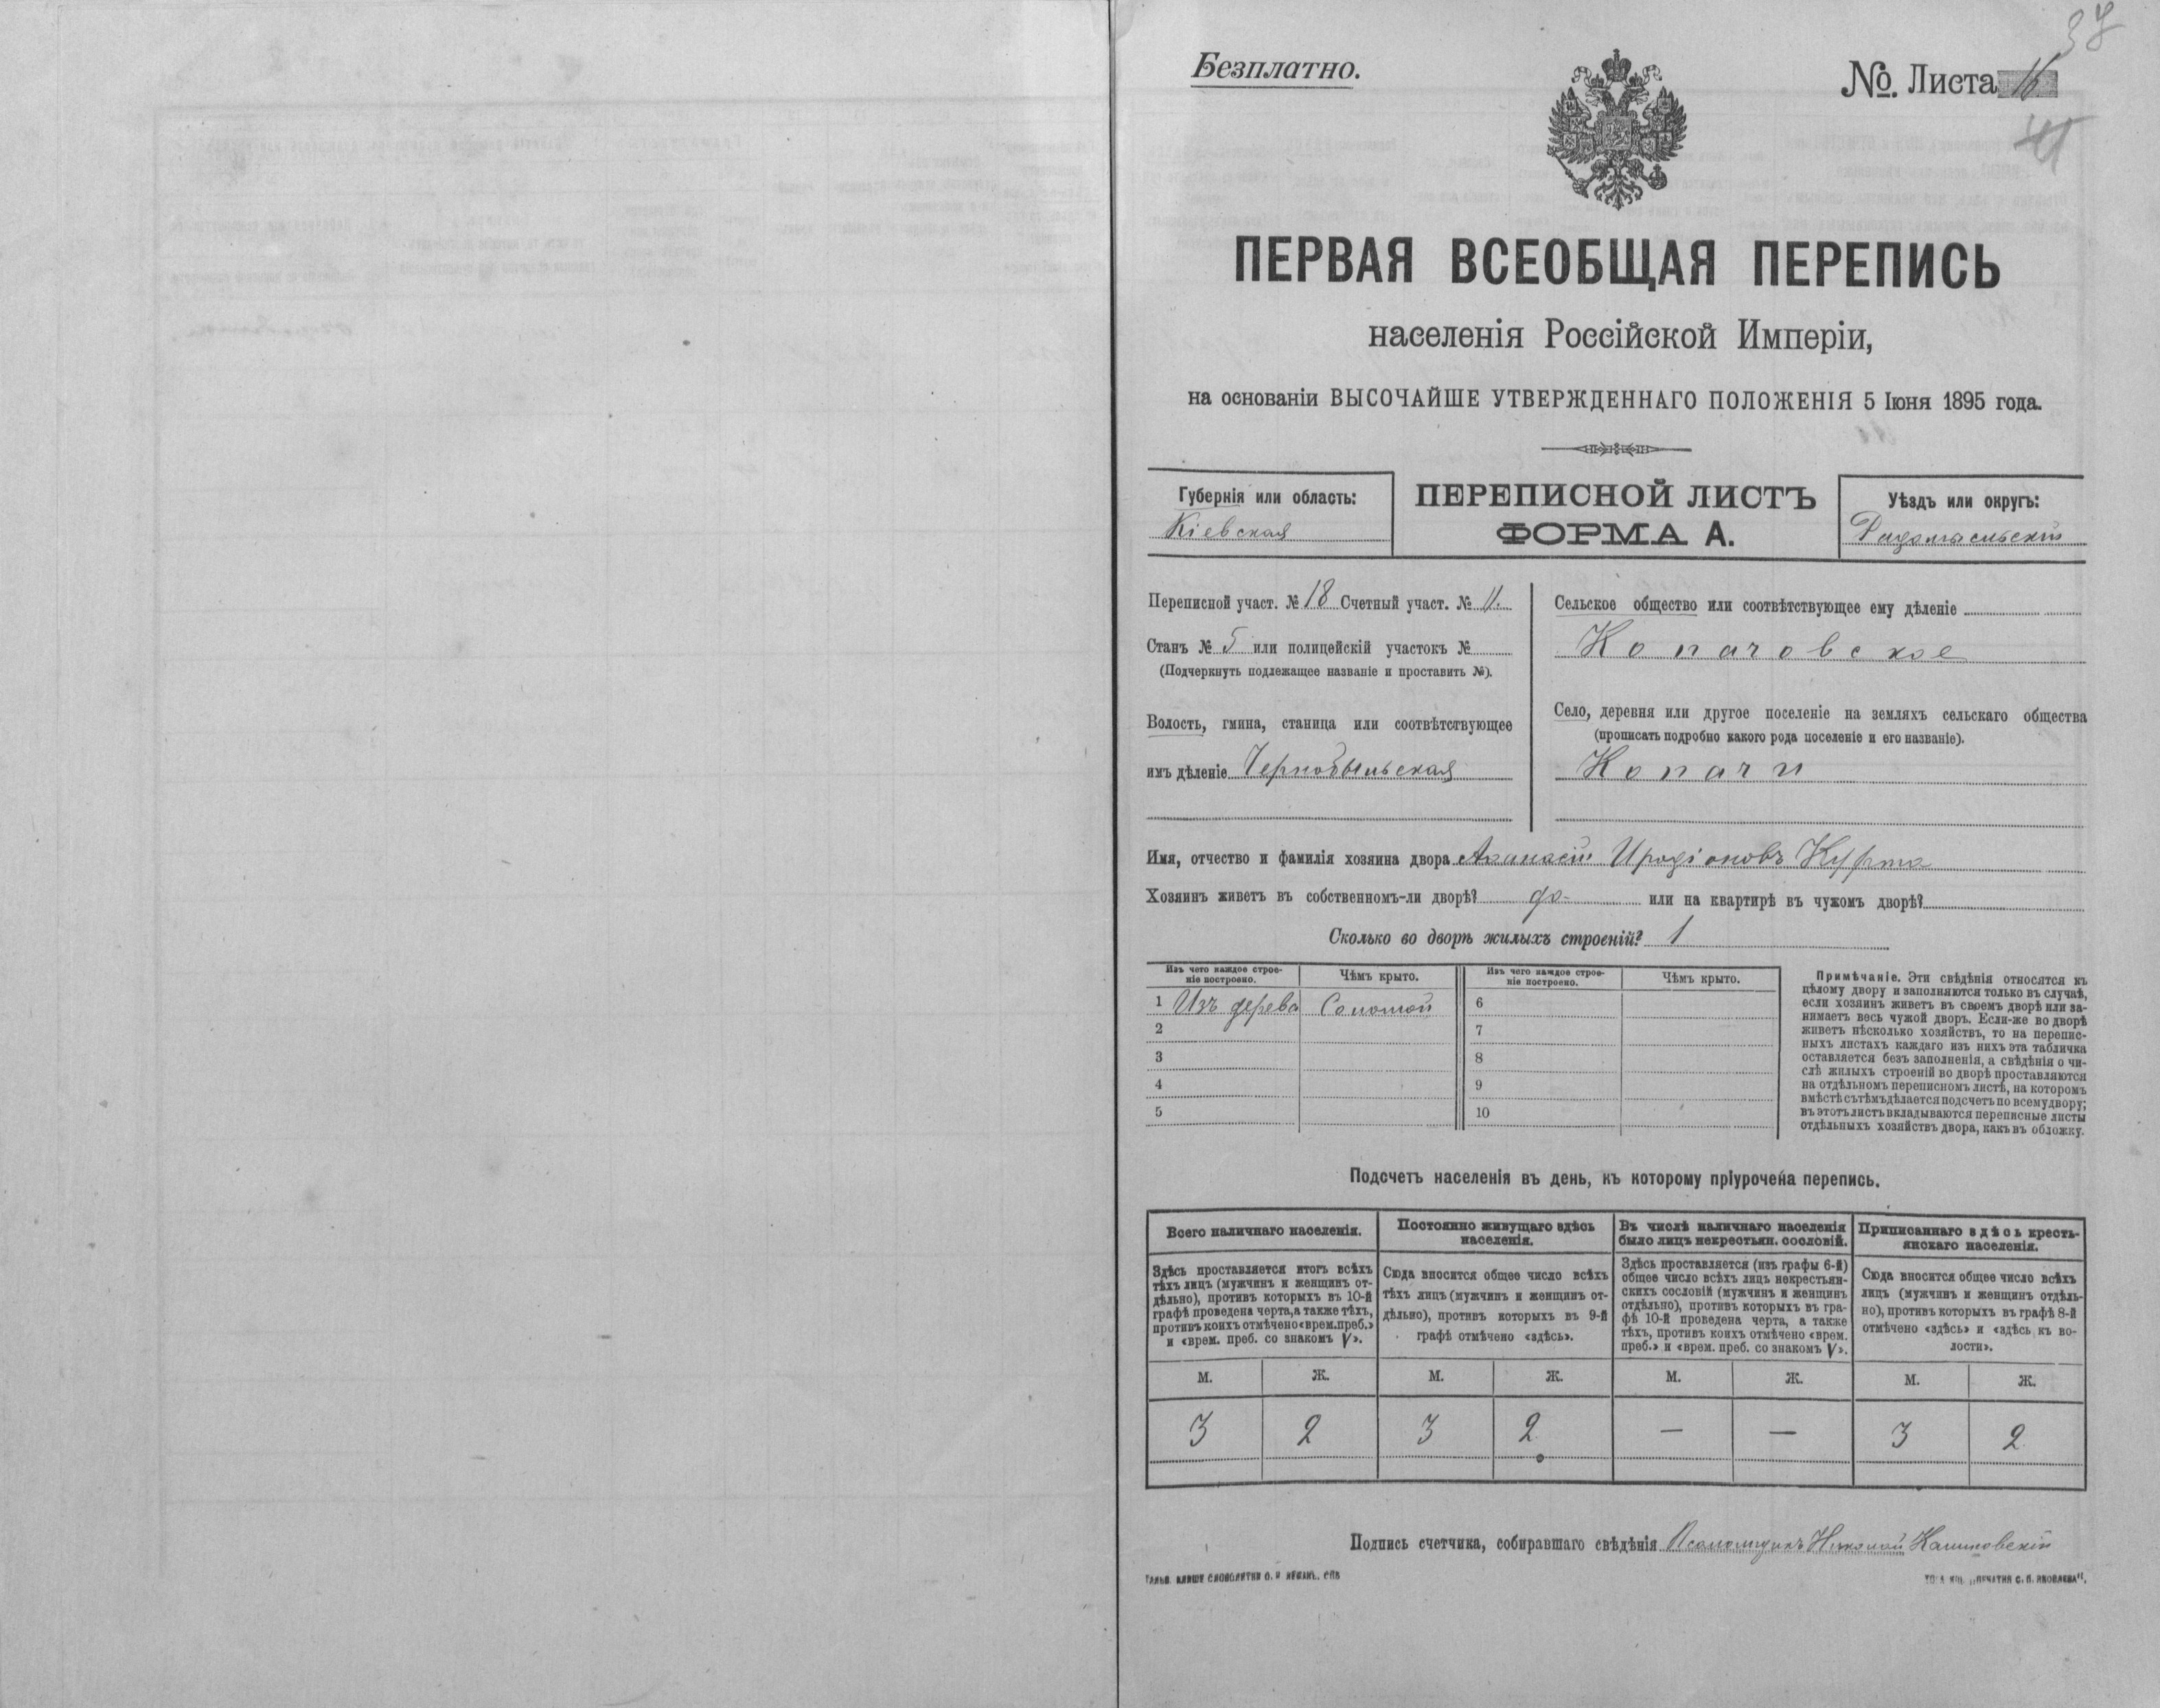 37
Безплатно.
№. Листа 16
41
ПЕРВАЯ ВСЕОБЩАЯ ПЕРЕПИСЬ
населенія Россійской Имперіи,
на основаніи ВЫСОЧАЙШЕ УТВЕРЖДЕННАГО ПОЛОЖЕНІЯ 5 Іюня 1895 года.
Губернія или область:
Кіевская
ПЕРЕПИСНОЙ ЛИСТЪ
ФОРМА А.
Уѣздъ или округъ:
Радомысльскій
Переписной участ. № 18 Счетный участ. № 11.
Станъ № 5 или полицейскій участокъ №
(Подчеркнуть подлежащее названіе и проставить №).
Волость, гмина, станица или соотвѣтствующее
имъ дѣленіе Чернобыльская
Сельское общество или соотвѣтствующее ему дѣленіе
Копачовское
Село, деревня или другое поселеніе на земляхъ сельскаго общества
(прописать подробно какого рода поселеніе и его названіе).
Копачи
Имя, отчество и фамилія хозяина двора Афанасій Иродіоновъ Курта
Хозяинъ живетъ въ собственномъ-ли дворѣ? да или на квартирѣ въ чужомъ дворѣ?
Сколько во дворѣ жилыхъ строеній? 1
Изъ чего каждое строе-
ніе построено.
Чѣмъ крыто.
Изъ чего каждое строе-
ніе построено.
Чѣмъ крыто.
1 Изъ дерева Соломой 6
2 7
3 8
4 9
5 10
Примѣчаніе. Эти свѣдѣнія относятся къ
цѣлому двору и заполняются только въ случаѣ,
если хозяинъ живетъ въ своемъ дворѣ или за-
нимаетъ весь чужой дворъ. Если-же во дворѣ
живетъ нѣсколько хозяйствъ, то на перепис-
ныхъ листахъ каждаго изъ нихъ эта табличка
оставляется безъ заполненія, а свѣдѣнія о чи-
слѣ жилыхъ строеній во дворѣ проставляются
на отдѣльномъ переписномъ листѣ, на которомъ
вмѣстѣ съ тѣмъ дѣлается подсчетъ по всему двору;
въ этотъ листъ вкладываются переписные листы
отдѣльныхъ хозяйствъ двора, какъ въ обложку.
Подсчетъ населенія въ день, къ которому пріурочена перепись.
Всего наличнаго населенія.
Здѣсь проставляется итогъ всѣхъ
тѣхъ лицъ (мужчинъ и женщинъ от-
дѣльно), противъ которыхъ въ 10-й
графѣ проведена черта, а также тѣхъ,
противъ коихъ отмѣчено «врем. преб.»
и «врем. преб. со знакомъ V».
Постоянно живущаго здѣсь
населенія.
Сюда вносится общее число всѣхъ
тѣхъ лицъ (мужчинъ и женщинъ от-
дѣльно), противъ которыхъ въ 9-й
графѣ отмѣчено «здѣсь».
Въ числѣ наличнаго населенія
было лицъ некрестьян. сословій.
Здѣсь проставляется (изъ графы 6-й)
общее число всѣхъ лицъ некрестьян-
скихъ сословій (мужчинъ и женщинъ
отдѣльно), противъ которыхъ въ гра-
фѣ 10-й проведена черта, а также
тѣхъ, противъ коихъ отмѣчено «врем.
преб.» и «врем. преб. со знакомъ V».
Приписаннаго здѣсь кресть-
янскаго населенія.
Сюда вносится общее число всѣхъ
лицъ (мужчинъ и женщинъ отдѣль-
но), противъ которыхъ въ графѣ 8-й
отмѣчено «здѣсь» и «здѣсь къ во-
лости».
М. Ж. М. Ж. М. Ж. М. Ж.
3 2 3 2 — — 3 2
Подпись счетчика, собиравшаго свѣдѣнія Псаломщикъ Николай Калиновскій